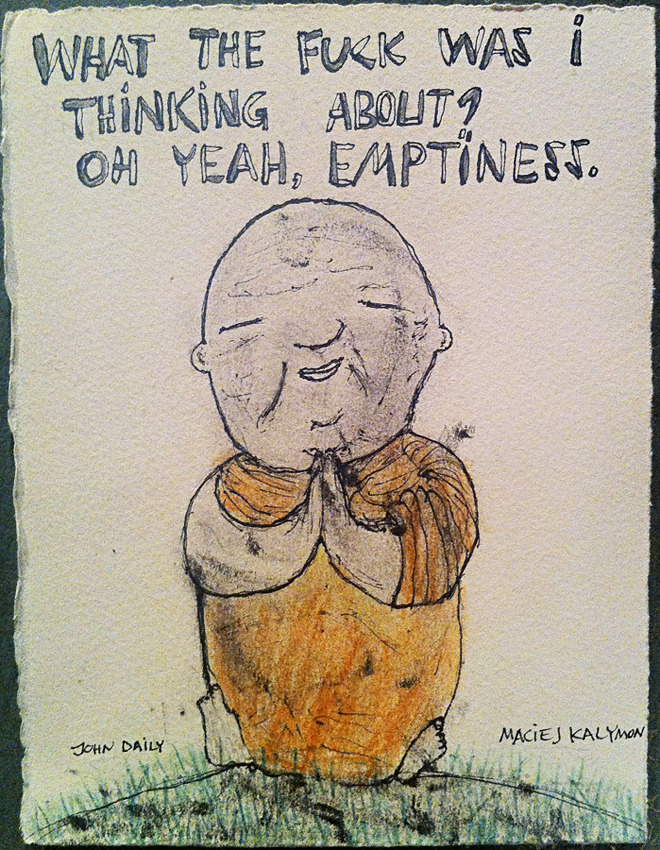 WHAT THE FUCK WAS i
THiNKiNG ABOUT?
OH YEAH, EMPTiNESS.
JOHN DAILY
MACIEJ KALYMON